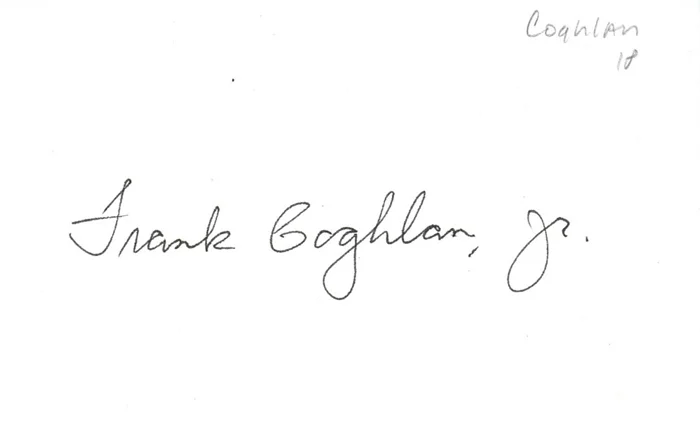 Coghlan
18
Frank Coghlan, Jr.